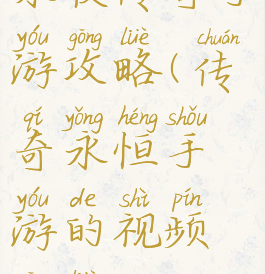 yóu gōng lüè chuán
游攻略(传
qí yǒng héng shǒu
奇永恒手
yóu de shì pín
游的视频